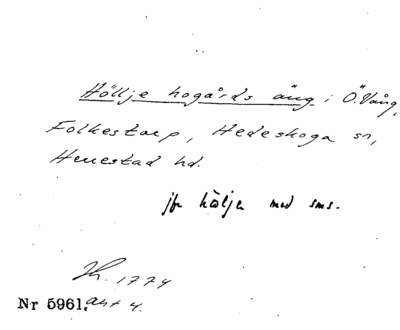 Höllje hogårds äng i Ö. Vång,
Folkestorp, Hedeskoga sn,
Herrestad hd.
jfr hölje med sms.
Lh. 1774
Nr 5961. akt 4.